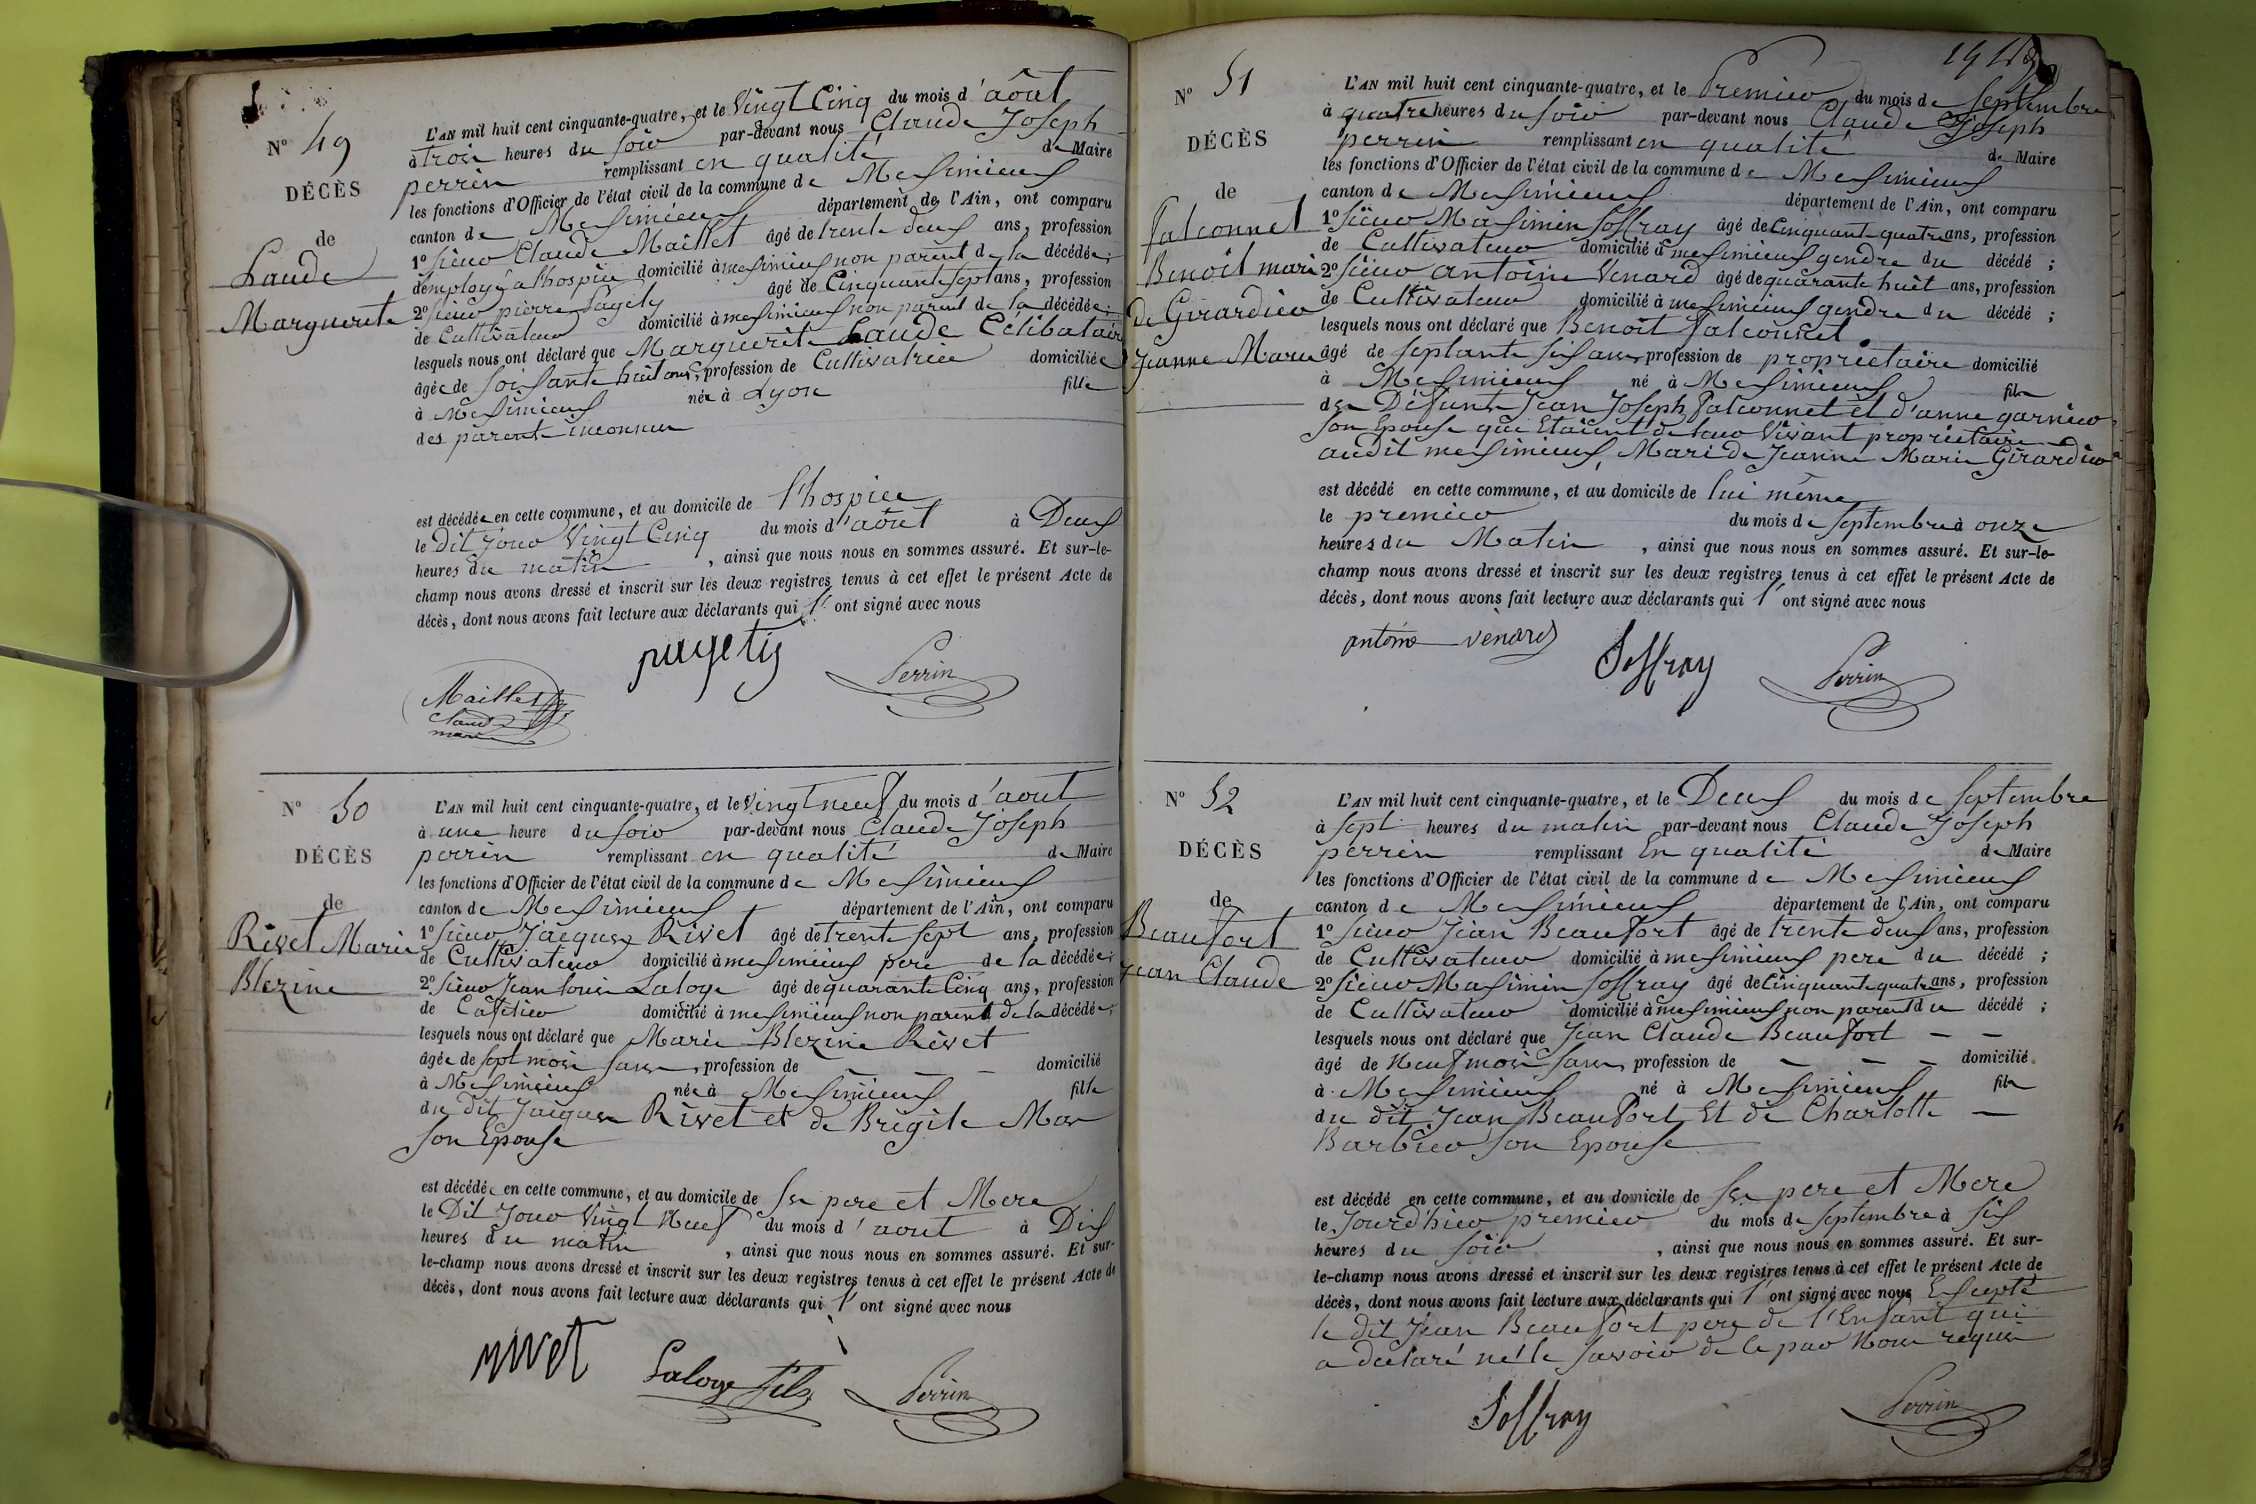 N° 49
DÉCÈS
de
Laude
Marguerite
L'AN mil huit cent cinquante-quatre, et le Vingt Cinq du mois d'aôut
à trois heures du soir par-devant nous Claude Joseph
perrin remplissant en qualité de Maire
les fonctions d'Officier de l'état civil de la commune de Meximieux
canton de Meximieux département de l'Ain, ont comparu
1° sieur Claude Maillet âgé de trente deux ans, profession
d'employé a l'hospice domicilié à meximieux non parent de la décédée;
2° sieur pierre pagety âgé de Cinquante sept ans, profession
de Cultivateur domicilié à meximieux non parent de la décédée;
lesquels nous ont déclaré que Marguerite Laude Célibataire
âgée de soixante huit ans, profession de Cultivatrice domiciliée
à Meximieux née à Lyon fille
des parents inconnus
est décédée en cette commune, et au domicile de l'hospice
le Dit jour Vingt Cinq du mois d'aôut à Deux
heures du matin, ainsi que nous nous en sommes assuré. Et sur-le-
champ nous avons dressé et inscrit sur les deux registres tenus à cet effet le présent Acte de
décès, dont nous avons fait lecture aux déclarants qui l' ont signé avec nous
pagety
Maillet
claude
marie
Perrin
N° 50
DÉCÈS
de
Rivet Marie
Blezine
L'AN mil huit cent cinquante-quatre, et le vingt neuf du mois d'aout
à une heure du soir par-devant nous Claude Joseph
perrin remplissant en qualité de Maire
les fonctions d'Officier de l'état civil de la commune de Meximieux
canton de Meximieux département de l'Ain, ont comparu
1° sieur Jacques Rivet âgé de trente sept ans, profession
de Cultivateur domicilié à meximieux pere de la décédée;
2° sieur Jean louis Laloge âgé de quarante Cinq ans, profession
de Cafetier domicilié à meximieux non parent de la décédée;
lesquels nous ont déclaré que Marie Blezine Rivet
âgée de sept mois sans, profession de — — — domicilié
à Meximieux née à Meximieux fille
du dit Jacques Rivet et de Brigite Mas
son Epouse
est décédée en cette commune, et au domicile de ses pere et Mere
le Dit Jour Vingt Neuf du mois d'aout à Dix
heures du matin, ainsi que nous nous en sommes assuré. Et sur-
le-champ nous avons dressé et inscrit sur les deux registres tenus à cet effet le présent Acte de
décès, dont nous avons fait lecture aux déclarants qui l' ont signé avec nous
rivet
Laloge fils
Perrin
N° 51
DÉCÈS
de
Falconnet
Benoit mari
de Girardier
Jeanne Marie
L'AN mil huit cent cinquante-quatre, et le Premier du mois de septembre
à quatre heures du soir par-devant nous Claude Joseph
perrin remplissant en qualité de Maire
les fonctions d'Officier de l'état civil de la commune de Meximieux
canton de Meximieux département de l'Ain, ont comparu
1° sieur Maximin Soffray âgé de Cinquante quatre ans, profession
de Cultivateur domicilié à meximieux gendre du décédé;
2° sieur antoine Venard âgé de quarante huit ans, profession
de Cultivateur domicilié à meximieux gendre du décédé;
lesquels nous ont déclaré que Benoît falconnet
âgé de septante six ans, profession de propriétaire domicilié
à Meximieux né à Meximieux fils
des Défunts Jean Joseph falconnet et d'anne garnier
son Epouse qui Etaient de leur Vivant propriétaires
audit meximieux, Mari de Jeanne Marie Girardier
est décédé en cette commune, et au domicile de lui même
le premier du mois de septembre à onze
heures du Matin, ainsi que nous nous en sommes assuré. Et sur-le-
champ nous avons dressé et inscrit sur les deux registres tenus à cet effet le présent Acte de
décès, dont nous avons fait lecture aux déclarants qui l' ont signé avec nous
antoine venard
Soffray
Perrin
N° 52
DÉCÈS
de
Beaufort
Jean Claude
L'AN mil huit cent cinquante-quatre, et le Deux du mois de septembre
à sept heures du matin par-devant nous Claude Joseph
perrin remplissant En qualité de Maire
les fonctions d'Officier de l'état civil de la commune de Meximieux
canton de Meximieux département de l'Ain, ont comparu
1° sieur Jean Beaufort âgé de trente deux ans, profession
de Cultivateur domicilié à meximieux pere du décédé;
2° sieur Maximin Soffray âgé de Cinquante quatre ans, profession
de Cultivateur domicilié à meximieux non parent du décédé;
lesquels nous ont déclaré que Jean Claude Beaufort — —
âgé de Neuf mois sans, profession de — — — domicilié
à Meximieux né à Meximieux fils
du dit Jean Beaufort Et de Charlotte —
Barbier son Epouse
est décédé en cette commune, et au domicile de ses pere et Mere
le Jourd'hier premier du mois de septembre à six
heures du soir, ainsi que nous nous en sommes assuré. Et sur-
le-champ nous avons dressé et inscrit sur les deux registres tenus à cet effet le présent Acte de
décès, dont nous avons fait lecture aux déclarants qui l' ont signé avec nous Excepté
le dit Jean Beaufort pere de l'Enfant qui
a declaré ne le savoir de ce par Nous requis
Soffray
Perrin